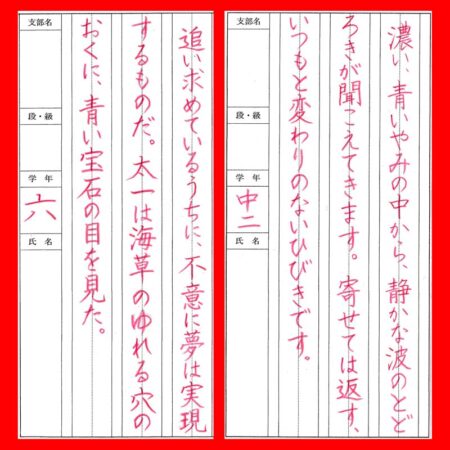 濃い、青いやみの中から、静かな波のとど
ろきが聞こえてきます。寄せては返す、
いつもと変わりのないひびきです。
支部名
段・級
学年
中二
氏名
追い求めているうちに、不意に夢は実現
するものだ。太一は海草のゆれる穴の
おくに、青い宝石の目を見た。
支部名
段・級
学年
六
氏名